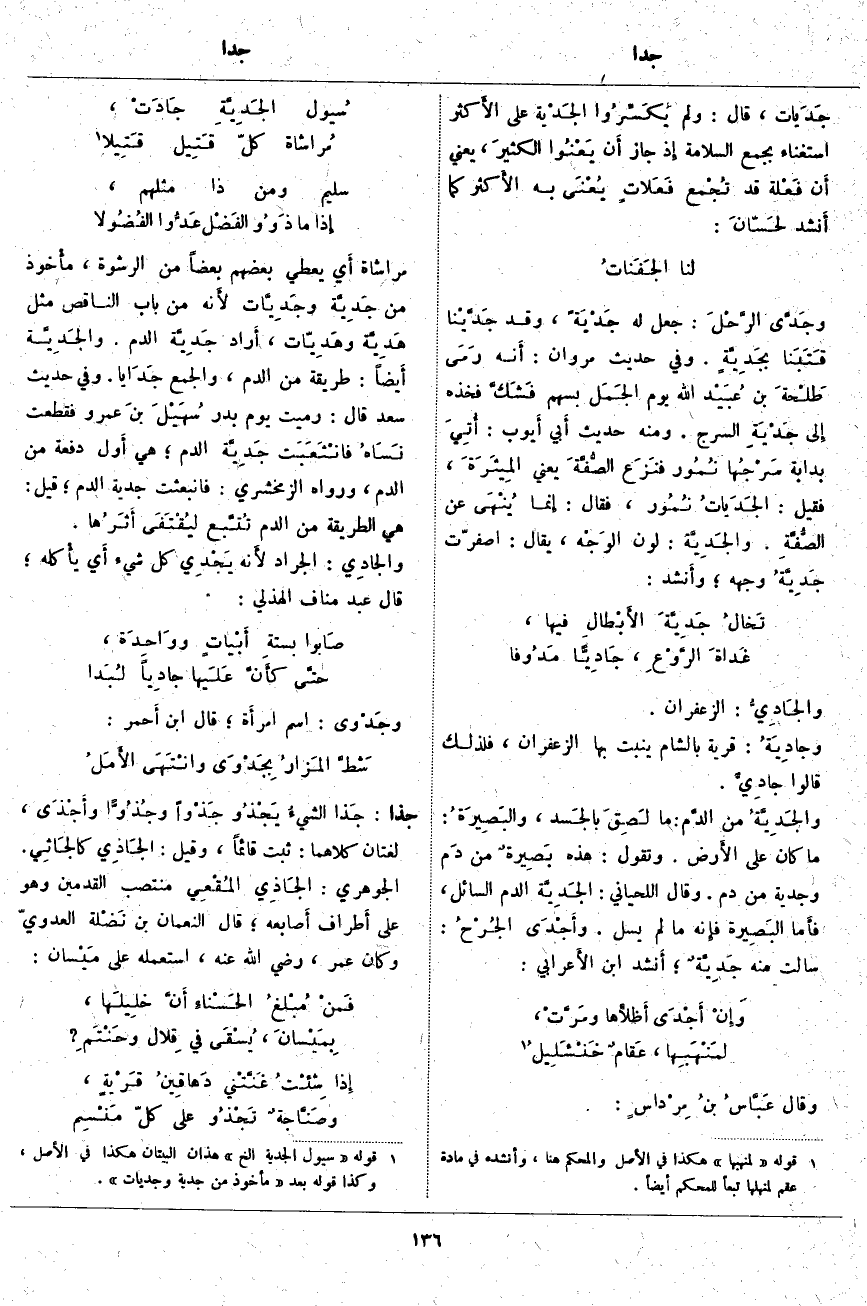 جدا
جَدَيات ، قال : ولم يُكَسِّرُوا الجَدْية على الأَكثر
استغناء بجمع السلامة إذ جاز أَن يَعْنُوا الكثيرَ ، يعني
أَن فَعْلة قد تُجْمع فَعَلاتٍ يُعْنَى به الأَكثر كما
أَنشد لحَسّانَ :
لنا الجَفَناتُ
وجَدَّى الرَّحْلَ : جعل له جَدْيَةً ، وقد جَدَّيْنا
قَتَبَنا بجَدِيَّةٍ . وفي حديث مروان : أَنه رَمَى
طَلْحةَ بن عُبَيْد الله يوم الجَمَل بسهم فَشَكَّ فخذه
إلى جَدْيَةِ السرج . ومنه حديث أَبي أَيوب : أُتِيَ
بدابة سَرْجُها نُمُور فنَزَع الصُّفَّةَ يعني المِيثَرَةَ ،
فقيل : الجَدَياتُ نُمُور ، فقال : إنما يُنْهَى عن
الصُّفَّةِ . والجَدِيَّة : لون الوَجْه ، يقال : اصفرّت
جَدِيَّةُ وجهه ؛ وأَنشد :
تَخالُ جَدِيَّةَ الأَبْطالِ فيها ،
غَداةَ الرَّوْعِ ، جَادِيًّا مَدُوفا
والجَادِيُّ : الزعفران .
وجادِيَةُ : قرية بالشام ينبت بها الزعفران ، فلذلك
قالوا جادِيٌّ .
والجَدِيَّةُ من الدَّم: ما لَصِقَ بالجَسد ، والبَصِيرَةُ :
ما كان على الأَرض . وتقول : هذه بَصِيرةٌ من دَمٍ
وجدية من دم . وقال اللحياني : الجَدِيَّة الدم السائل،
فأَما البَصِيرة فإنه ما لم يسل . وأَجْدَى الجُرْحُ :
سالت منه جَدِيَّةٌ ؛ أَنشد ابن الأَعرابي :
وَإِنْ أَجْدَى أَظَلاَّها ومَرَّتْ ،
لمَنْهَبِها ، عَقامٌ خَنْشَلِيلُ١
وقال عَبَّاسُ بنُ مِرْداسٍ :
١ قوله « لمنهبها » هكذا في الأصل والمحكم هنا ، وأنشده في مادة
عقم لمنهلها تبعاً للمحكم أيضاً .
جدا
سُيول الجَدِيَّةِ جادَتْ ،
مُراشاة كلّ قَتِيل قَتِيلا١
سليم ومن ذا مثلهم ،
إذا ما ذَوُو الفَضْل عَدُّوا الفُضُولا
مراشاة أَي يعطي بعضهم بعضاً من الرشوة ، مأْخوذ
من جَدِيَّة وجَدِيَّات لأَنه من باب الناقص مثل
هَدِيَّة وهَدِيّات ، أَراد جَدِيَّة الدم . والجَدِيَّة
أَيضاً : طريقة من الدم ، والجمع جَدَايا. وفي حديث
سعد قال : رميت يوم بدر سُهَيْلَ بنَ عمرو فقطعت
نَساهُ فانْثَعَبَت جَدِيَّةُ الدم ؛ هي أَول دفعة من
الدم ، ورواه الزمخشري : فانبعثت جدية الدم ؛ قيل :
هي الطريقة من الدم تُتَّبع ليُقْتَفَى أَثَرُها .
والجادِي : الجراد لأَنه يَجْدِي كل شيء أَي يأْكله ؛
قال عبد مناف الهذلي :
صابوا بستةِ أَبْياتٍ ووَاحِدَة ،
حتَّى كأَنَّ عَلَيها جادِياً لُبَدا
وجَدْوى : اسم امرأَة ؛ قال ابن أَحمر :
شَطَّ المَزارُ بِجَدْوَى وانْتَهَى الأَمَلُ
جذا : جَذا الشيءُ يَجْذُو جَذْواً وجُذُوًّا وأَجْذَى ،
لغتان كلاهما : ثبت قائماً ، وقيل : الجَاذي كالجَاثي.
الجوهري : الجَاذي المُقْعِي منتصب القدمين وهو
على أَطراف أَصابعه ؛ قال النعمان بن نَضْلة العدويّ
وكان عمر ، رضي الله عنه ، استعمله على مَيْسان :
فَمَنْ مُبْلغُ الحَسْناء أَنَّ خلِيلَها ،
بِمَيْسانَ ، يُسْقَى في قِلال وحَنْتَمِ ؟
إذا شِئْتُ غَنَّتْني دَهاقِينُ قَرْيةٍ ،
وصَنَّاجةٌ تَجْذُو على كلّ مَنْسِم
١ قوله « سيول الجدية الخ » هذان البيتان هكذا في الأصل ،
وكذا قوله بعد « مأخوذ من جدية وجديات » .
١٣٦